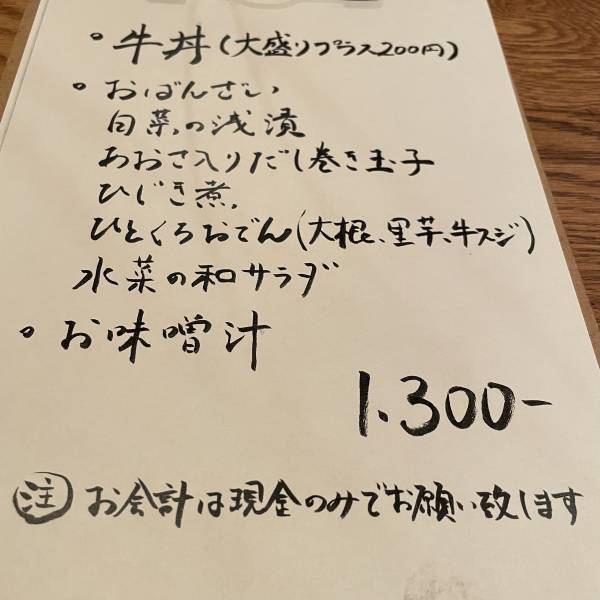 • 牛丼(大盛りプラス200円)
• おばんざい
白菜の浅漬
あおさ入りだし巻き玉子
ひじき煮
ひとくちおでん(大根、里芋、牛スジ)
水菜の和サラダ
• お味噌汁
1.300-
注 お会計は現金のみでお願い致します